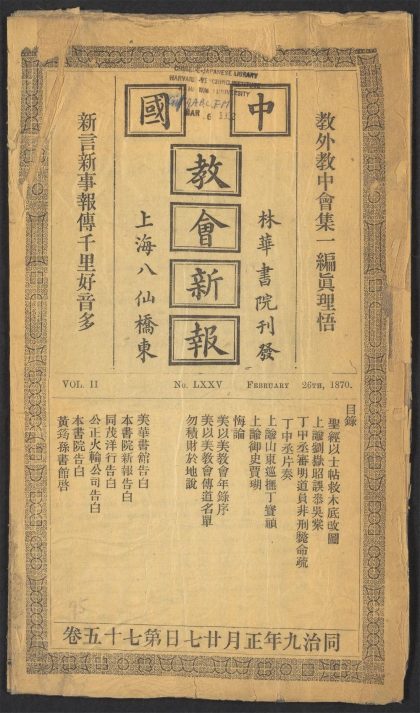 CHINESE-JAPANESE LIBRARY
HARVARD-YENCHING INSTITUTE
UNIVERSITY
MAR 6
中國
教會新報
教外教中會集一編眞理悟
林華書院刊發
上海八仙橋東
新言新事報傳千里好音多
VOL. II No. LXXV FEBRUARY 26TH, 1870.
目錄
聖經以土帖救木底改圖
上諭劉嶽昭誤叅吳棠
丁中丞審明道員非刑斃命疏
丁中丞片奏
上諭山東巡撫丁寶楨
上諭御史賈瑚
悔論
美以美教會年錄序
美以美教會傳道名單
勿積財於地說
美華書館告白
本書院新報告白
同茂洋行告白
公正火輪公司告白
本書院告白
黃筠孫書館啓
同治九年正月廿七日第七十五卷